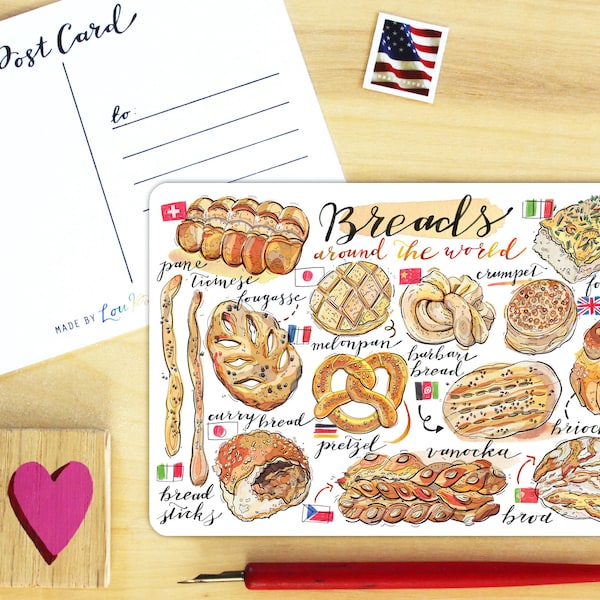 Post Card
to:
MADE BY Lou
Breads
around the world
pane
ticinese
fougasse
melonpan
crumpet
barbari
bread
curry bread
pretzel
vanocka
bread
sticks
brod